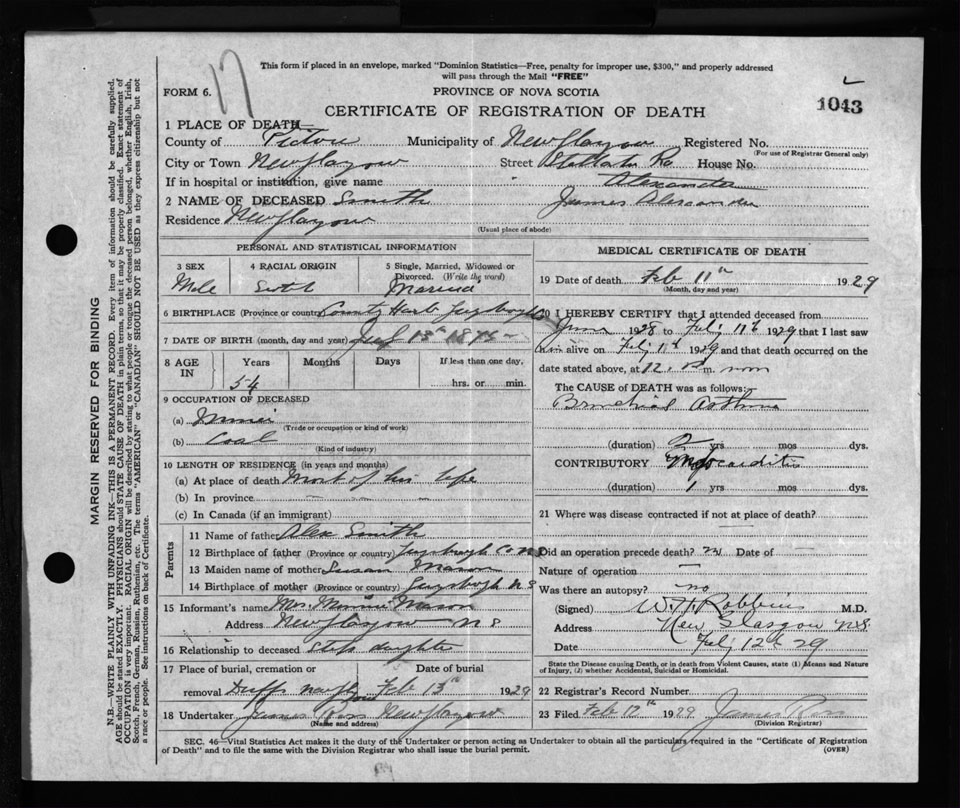 This form if placed in an envelope, marked "Dominion Statistics—Free, penalty for improper use, $300," and properly addressed
will pass through the Mail "FREE"
FORM 6. 17 PROVINCE OF NOVA SCOTIA
CERTIFICATE OF REGISTRATION OF DEATH 1043
1 PLACE OF DEATH—
County of Pictou Municipality of New Glasgow Registered No.
(For use of Registrar General only)
City or Town New Glasgow Street Stellarton Rd House No.
If in hospital or institution, give name Alexander
2 NAME OF DECEASED Smith James Alexander
Residence New Glasgow
(Usual place of abode)
PERSONAL AND STATISTICAL INFORMATION
3 SEX 4 RACIAL ORIGIN 5 Single, Married, Widowed or Divorced. (Write the word)
Male Scotch Married
6 BIRTHPLACE (Province or country) County Harb Guysboro
7 DATE OF BIRTH (month, day and year) 13th 1875
8 AGE IN Years Months Days If less than one day.
54 hrs. or min.
9 OCCUPATION OF DECEASED
(a) Miner
(Trade or occupation or kind of work)
(b) Coal
(Kind of industry)
10 LENGTH OF RESIDENCE (in years and months)
(a) At place of death Most of his life
(b) In province
(c) In Canada (if an immigrant)
Parents
11 Name of father Alex Smith
12 Birthplace of father (Province or country) Guysborogh Co NS
13 Maiden name of mother Susan Mason
14 Birthplace of mother (Province or country) Guysborgh N S
15 Informant's name Mrs. Minnie Mason
Address New Glasgow N S
16 Relationship to deceased Step daughter
17 Place of burial, cremation or removal Date of burial
Duffs Feb 13th 1929
18 Undertaker James Ross New Glasgow
(Name and address)
MEDICAL CERTIFICATE OF DEATH
19 Date of death Feb 11th 1929
(Month, day and year)
20 I HEREBY CERTIFY that I attended deceased from
June 1928 to Feby 11th 1929 and that I last saw
him alive on Feby 11th 1929 and that death occurred on the
date stated above, at 12 m. noon
The CAUSE of DEATH was as follows:
Bronchial Asthma
(duration) 2 yrs mos dys.
CONTRIBUTORY Myocarditis
(duration) 1 yrs mos dys.
21 Where was disease contracted if not at place of death?
Did an operation precede death? no Date of —
Nature of operation —
Was there an autopsy? no
(Signed) W. H. Robbins M.D.
Address New Glasgow N.S.
Date Feby 12th 29
State the Disease causing Death, or in death from Violent Causes, state (1) Means and Nature
of Injury, (2) whether Accidental, Suicidal or Homicidal.
22 Registrar's Record Number
23 Filed Feb 12th 1929 James Ross
(Division Registrar)
SEC. 46—Vital Statistics Act makes it the duty of the Undertaker or person acting as Undertaker to obtain all the particulars required in the "Certificate of Registration
of Death" and to file the same with the Division Registrar who shall issue the burial permit. (OVER)
MARGIN RESERVED FOR BINDING
N.B.—WRITE PLAINLY WITH UNFADING INK—THIS IS A PERMANENT RECORD. Every item of information should be carefully supplied.
AGE should be stated EXACTLY. PHYSICIANS should STATE CAUSE OF DEATH in plain terms, so that it may be properly classified. Exact statement of
OCCUPATION is very important. RACIAL ORIGIN will be described by stating to what people or tongue the deceased person belonged, whether English, Irish,
Scotch, French, German, Russian, Ruthenian, etc. The terms "AMERICAN" or "CANADIAN" SHOULD NOT BE USED as they express citizenship but not
a race or people. See instructions on back of Certificate.